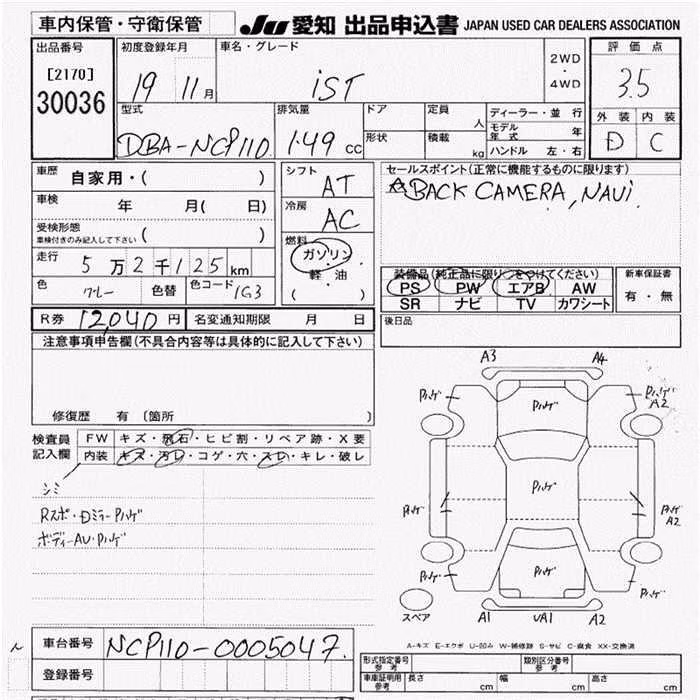 車内保管・守衛保管
JU 愛知 出品申込書 JAPAN USED CAR DEALERS ASSOCIATION
出品番号
[2170]
30036
初度登録年月
19 11月
車名・グレード
iST
2WD
・
4WD
評価点
3.5
外装 内装
D C
型式
DBA-NCP110
排気量
1.49 CC
ドア
形状
定員 人
積載 kg
ディーラー・並行
モデル年式 年
ハンドル 左・右
車歴 自家用・( )
車検 年 月( 日)
受検形態
車検付きのみ記入して下さい ( )
走行 5万2千125km
色 グレー 色替 色コード 1G3
シフト AT
冷房 AC
燃料
ガソリン
軽・油
( )
セールスポイント(正常に機能するものに限ります)
☆BACK CAMERA, NAVi.
装備品(純正品に限り○をつけてください)
PS PW エアB AW
SR ナビ TV カワシート
新車保証書
有・無
R券 12,040円 名変通知期限 月 日
後日品
注意事項申告欄(不具合内容等は具体的に記入して下さい)
修復歴 有〔箇所 〕
検査員記入欄
FW キズ・飛石・ヒビ割・リペア跡・X要
内装 キズ・汚レ・コゲ・穴・スレ・キレ・破レ
シミ
Rスポ・Dミラー Pハゲ
ボディーAU・Pハゲ
A3 A4
Pハゲ Pハゲ Pハゲ A2
Pハゲ Pハゲ Pハゲ A2
Pハゲ Pハゲ Pハゲ
スペア A1 UA1 A2
A-キズ E-エクボ U-凹み W-補修跡 S-サビ C-腐食 XX-交換済
車台番号 NCP110-0005047.
登録番号
型式指定番号 参考
類別区分番号 参考
車庫証明用 参考 長さ cm 幅 cm 高さ cm